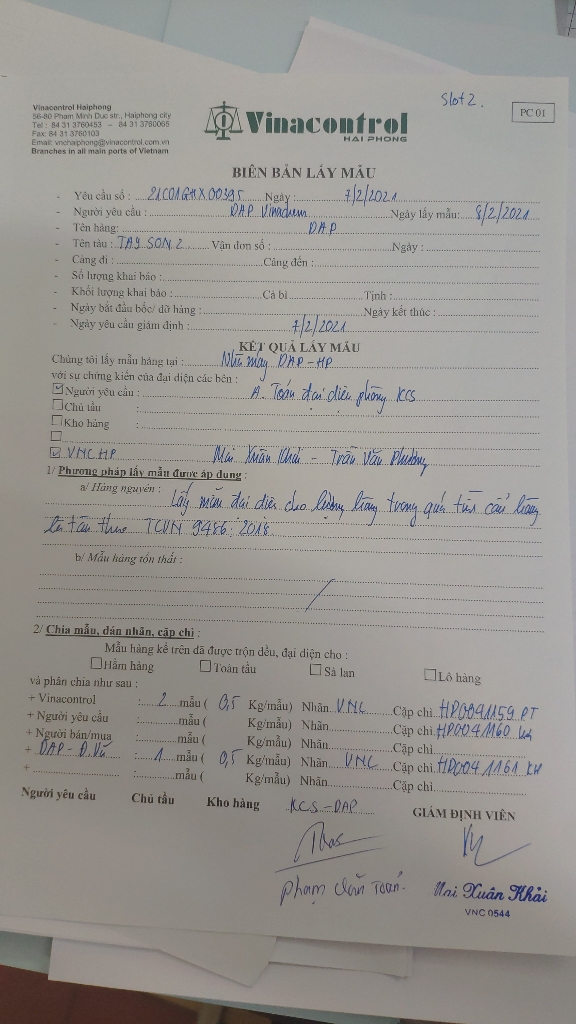 Slot 2.
PC 01
Vinacontrol Haiphong
56-80 Pham Minh Duc str., Haiphong city
Tel : 84 31 3760453 – 84 31 3760065
Fax: 84 31 3760103
Email: vnchaiphong@vinacontrol.com.vn
Branches in all main ports of Vietnam
Vinacontrol
HAI PHONG
BIÊN BẢN LẤY MẪU
- Yêu cầu số : 21C01GHX00395 Ngày : 7/2/2021
- Người yêu cầu : DAP Vinachem Ngày lấy mẫu: 8/2/2021
- Tên hàng: DAP
- Tên tàu : TAY SON 2 Vận đơn số : Ngày :
- Cảng đi : Cảng đến :
- Số lượng khai báo :
- Khối lượng khai báo : Cả bì Tịnh :
- Ngày bắt đầu bốc/ dỡ hàng : Ngày kết thúc :
- Ngày yêu cầu giám định : 7/2/2021
KẾT QUẢ LẤY MẪU
Chúng tôi lấy mẫu hàng tại : Nhà máy DAP - HP
với sự chứng kiến của đại diện các bên :
Người yêu cầu : A. Toán đại diện phòng KCS
Chủ tầu :
Kho hàng :
VNC HP Mai Xuân Khải - Trần Văn Phương
1/ Phương pháp lấy mẫu được áp dụng :
a/ Hàng nguyên : Lấy mẫu đại diện cho lượng hàng trong quá trình cẩu hàng
từ tàu theo TCVN 9486: 2018
b/ Mẫu hàng tổn thất :
2/ Chia mẫu, dán nhãn, cặp chì :
Mẫu hàng kể trên đã được trộn đều, đại diện cho :
Hầm hàng Toàn tầu Sà lan Lô hàng
và phân chia như sau :
+ Vinacontrol : 2 mẫu ( 0,5 Kg/mẫu) Nhãn VNC Cặp chì HP0041159 PT
+ Người yêu cầu : mẫu ( Kg/mẫu) Nhãn Cặp chì HP0041160
+ Người bán/mua : mẫu ( Kg/mẫu) Nhãn Cặp chì
+ DAP - Đ.Vũ : 1 mẫu ( 0,5 Kg/mẫu) Nhãn VNC Cặp chì HP0041161
+ : mẫu ( Kg/mẫu) Nhãn Cặp chì
Người yêu cầu Chủ tầu Kho hàng KCS-DAP GIÁM ĐỊNH VIÊN
Mai Xuân Khải
VNC 0544